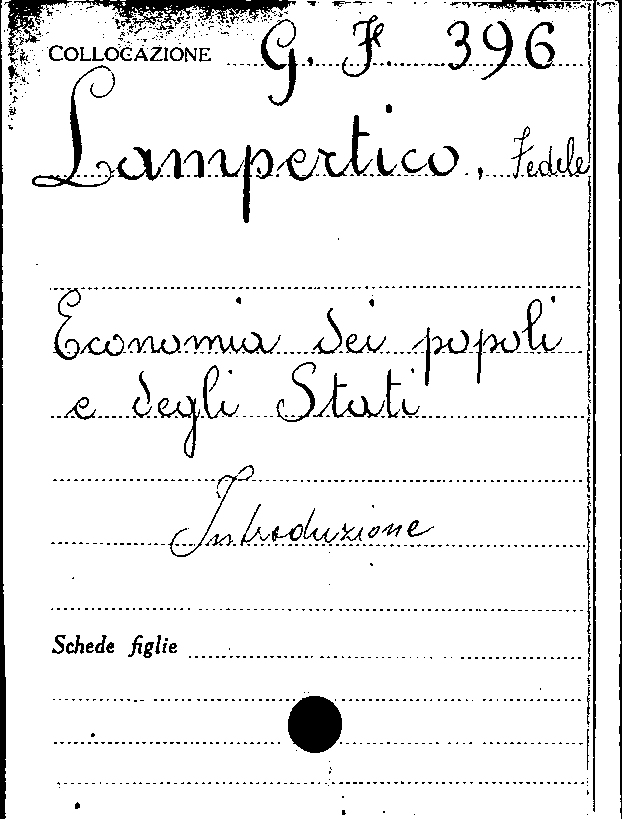 COLLOCAZIONE G. F. 396
Lampertico, Fedele
Economia dei popoli
e degli Stati
Introduzione
Schede figlie